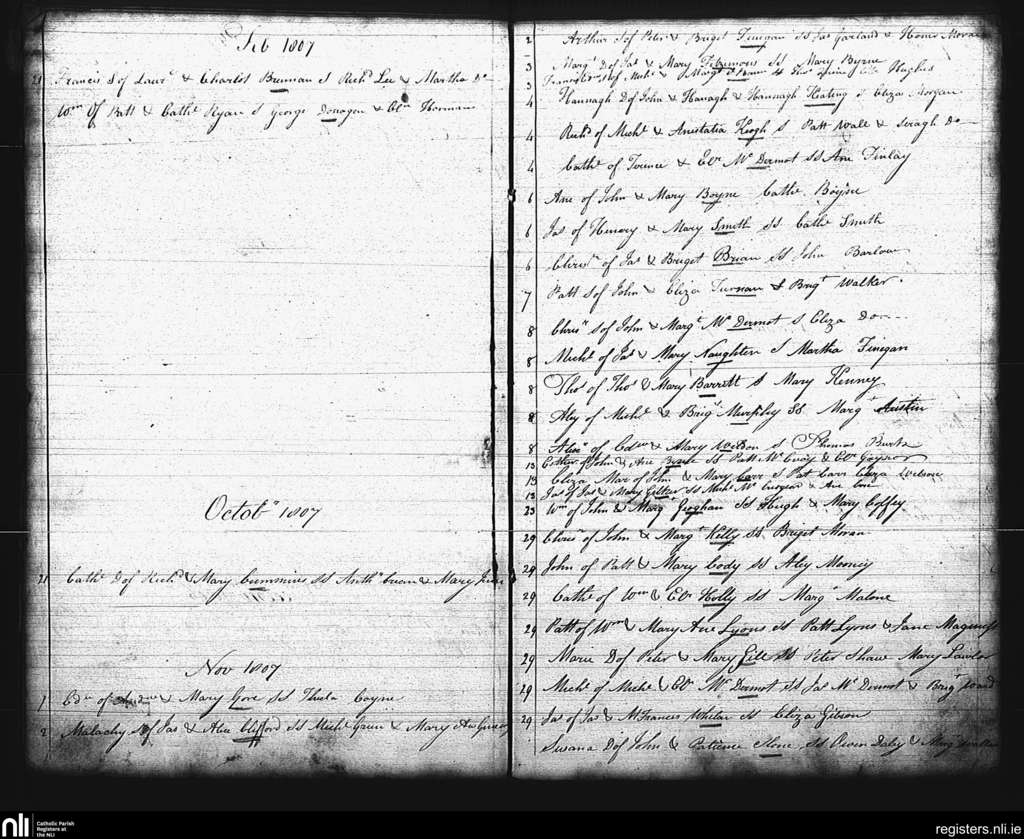 Feb 1807
21 Francis S of Laur.ᵉ & Charlot Brennan S Rich.ᵈ Lee & Martha Do
Wᵐ Of Patt & Cath.ᵉ Ryan S George Donagon &
Octob.ʳ 1807
21 Cath.ᵉ D of Rich.ᵈ & Mary Cummins SS Anth.ʸ & Mary
Nov 1807
1 Edʷ of & Mary Gore SS Coyne
2 Malachy S of Jas & Alice Clifford SS Mich.ˡ & Mary
2 Arthur S of Peter & Briget Finegan SS Jas Garland & Moran
3 Marg.ᵗ D of Jas & Mary SS Mary Byrne
3 of Mich.ˡ & Marg.ᵗ Hughes
4 Hannagh D of John & Hanagh & Hannagh Keating S Eliza Morgan
4 Rich.ᵈ of Mich.ˡ & Anistatia Keogh S Patt Wall & Seragh Do
4 Cath.ᵉ of Terence & Elʳ McDermot SS Ane Finlay
6 Ane of John & Mary Boyne Cathe Boyne
6 Jas of Henery & Mary Smith SS Cathe Smith
6 Chrisʳ of Jas & Briget Brian SS John Barlow
7 Patt S of John & Eliza & Brig.ᵗ Walker
8 Chrisʳ S of John & Marg.ᵗ McDermot S Eliza Do
8 Mich.ˡ of Jas & Mary Naughten S Martha Finegan
8 Thos of Thos & Mary Barrett S Mary Kenney
8 Aley of Mich.ˡ & Brig.ᵗ Murphy SS Marg.ᵗ Austin
8 of Edʷ & Mary S Thomas Burke
13 Esther of John & Ane Byrne SS Patt & Elʳ Gaynor
13 Eliza Mar of John & Mary Carr S Pat Carr Eliza Wilson
13 Jas of Jas & Mary SS Mich.ˡ & Ane
23 Wᵐ of John & Marg.ᵗ Geoghan SS Hugh & Mary Coffey
29 Chrisʳ of John & Marg.ᵗ Kelly SS Briget Moran
29 John of Patt & Mary Cody SS Aley Mooney
29 Cathe of Wᵐ & Elʳ Holly SS Marg.ᵗ Malone
29 Patt of Wᵐ & Mary Ane Lyons SS Patt Lyons & Jane Maguness
29 Marie D of Peter & Mary Gill SS Peter Shaw Mary Lawlor
29 Mich.ˡ of Mich.ˡ & Elʳ McDermot SS Jas McDermot & Brig.ᵗ
29 Jas of Jas & M Frances Whelan SS Eliza Gibson
Susana D of John & Patience Stone SS Owen Daly & Marg.ᵗ
nli
Catholic Parish
Registers at
the NLI
registers.nli.ie